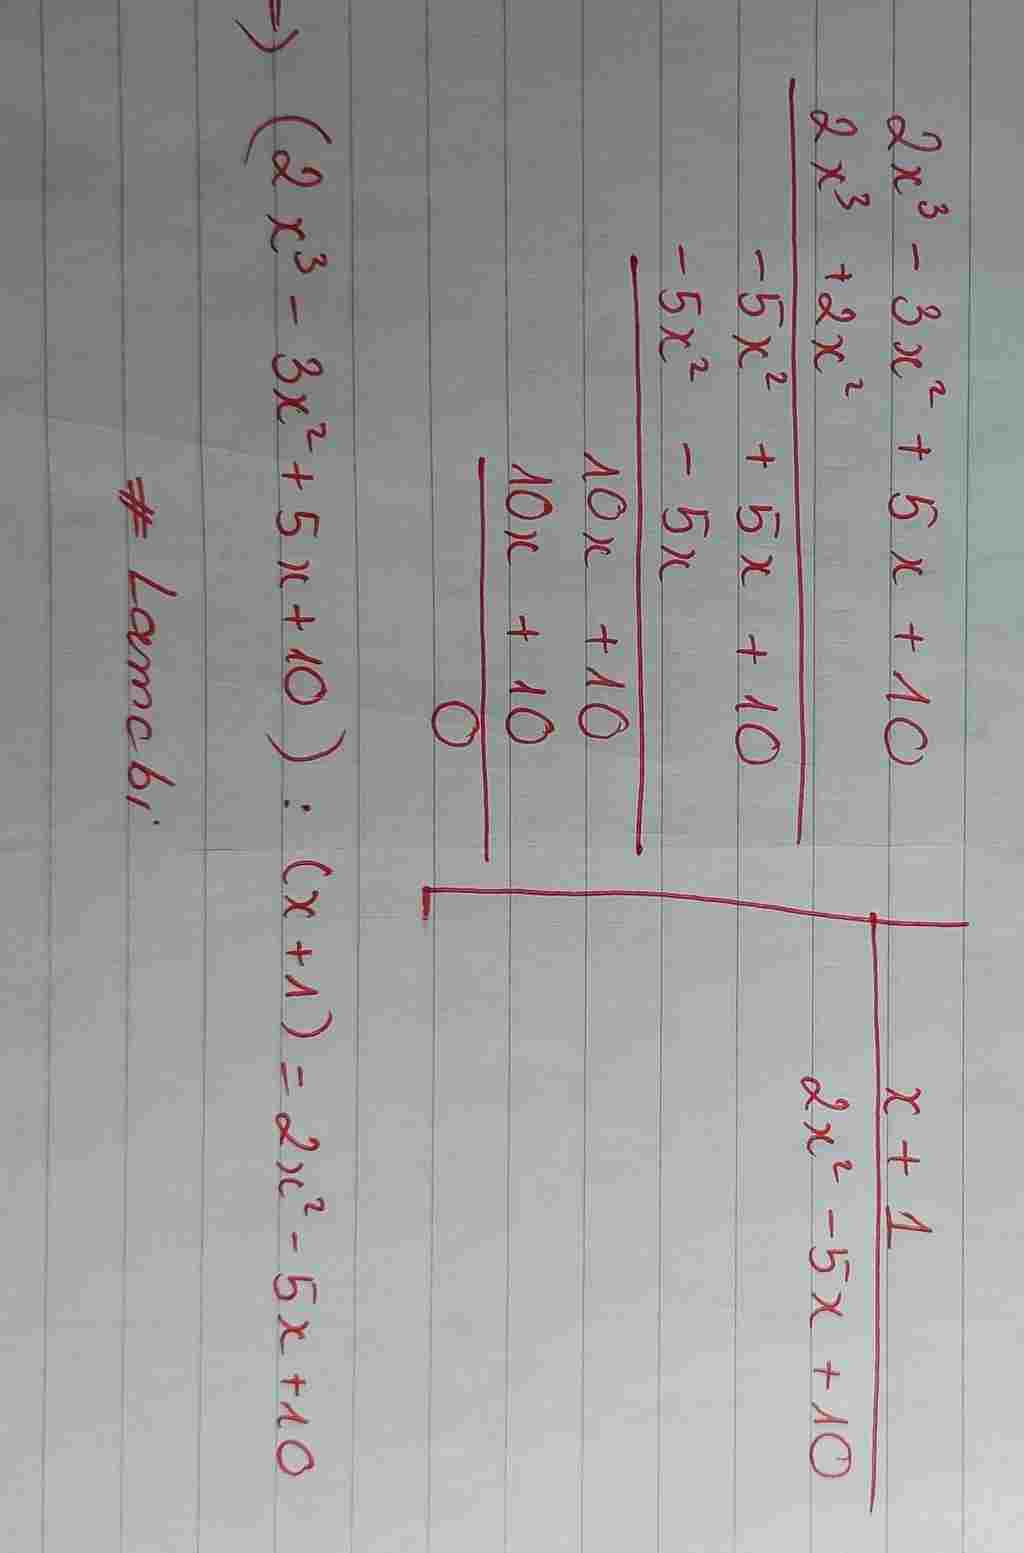 2x³ - 3x² + 5x + 10 x + 1
2x³ + 2x² 2x² - 5x + 10
-5x² + 5x + 10
-5x² - 5x
10x + 10
10x + 10
0
=) (2x³ - 3x² + 5x + 10) : (x + 1) = 2x² - 5x + 10
# Lamcbi